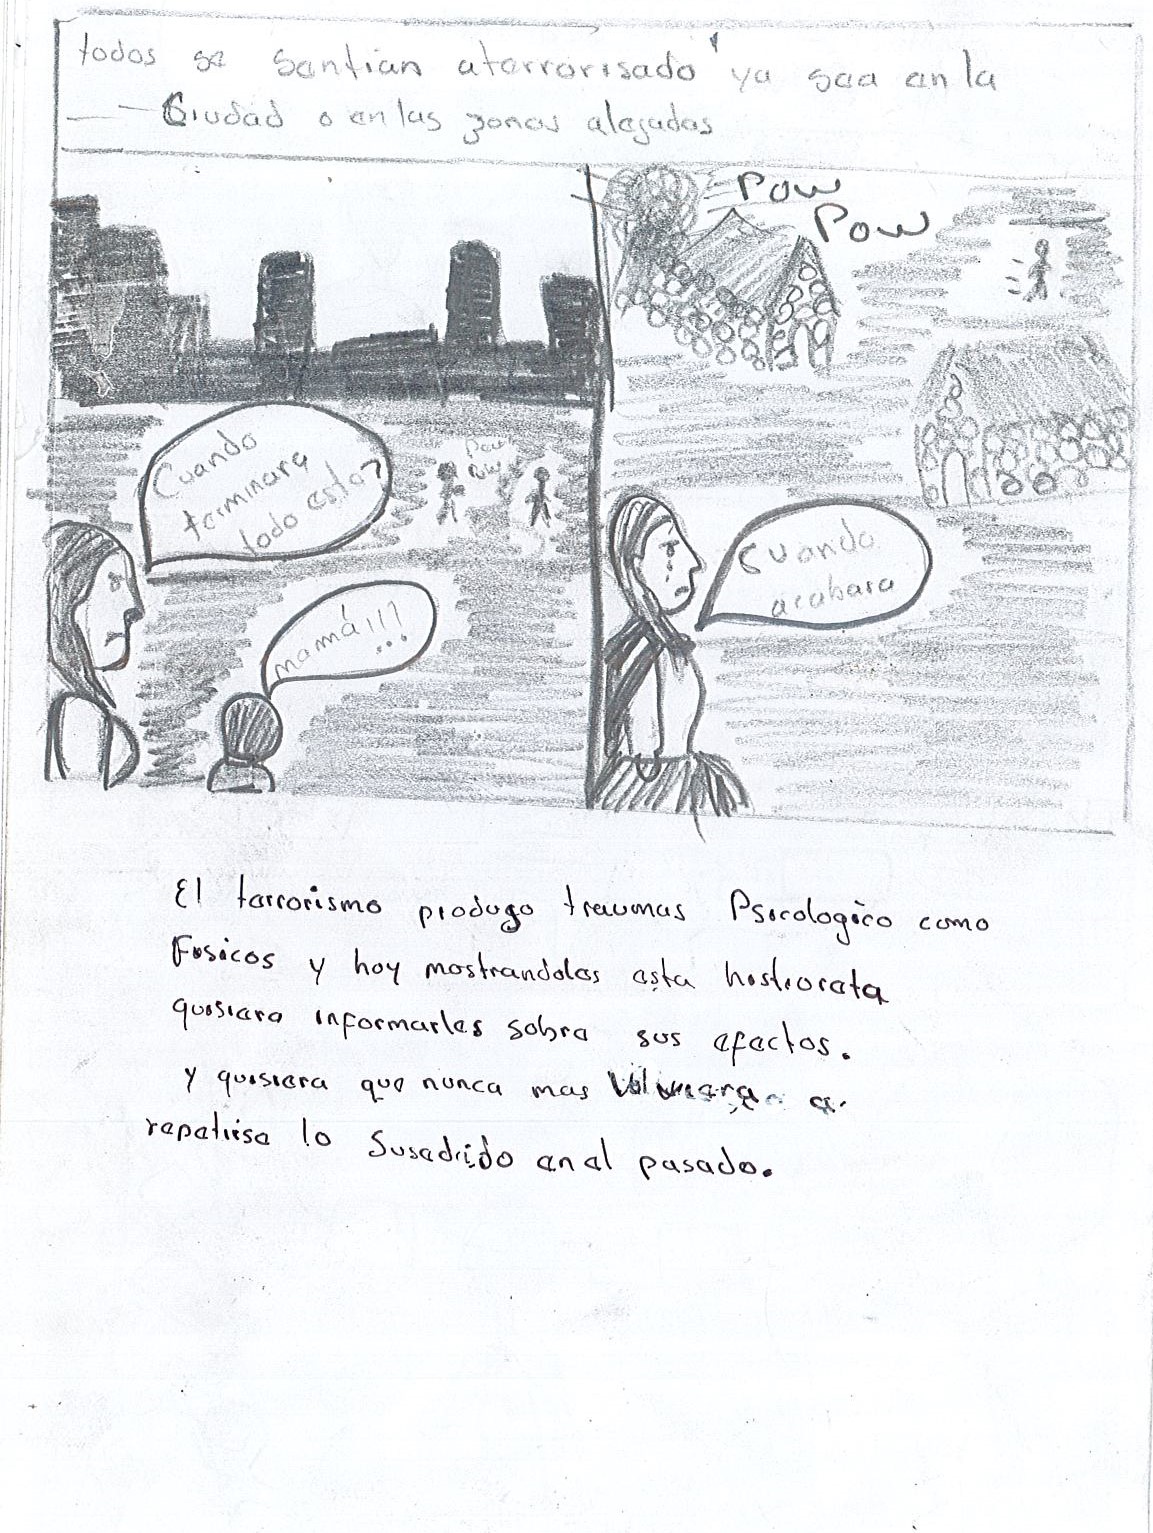 todos se sentian aterrorisado ya sea en la
Ciudad o en las zonas alejadas
POW
POW
Cuando
terminara
todo esto?
Pow
Pow
mamá!!!
...
Cuando
acabara
El terrorismo produgo traumas Psicologico como
Fisicos y hoy mostrandoles esta historieta
quisiera informarles sobre sus efectos.
Y quisiera que nunca mas a
repetirse lo Susedido en el pasado.